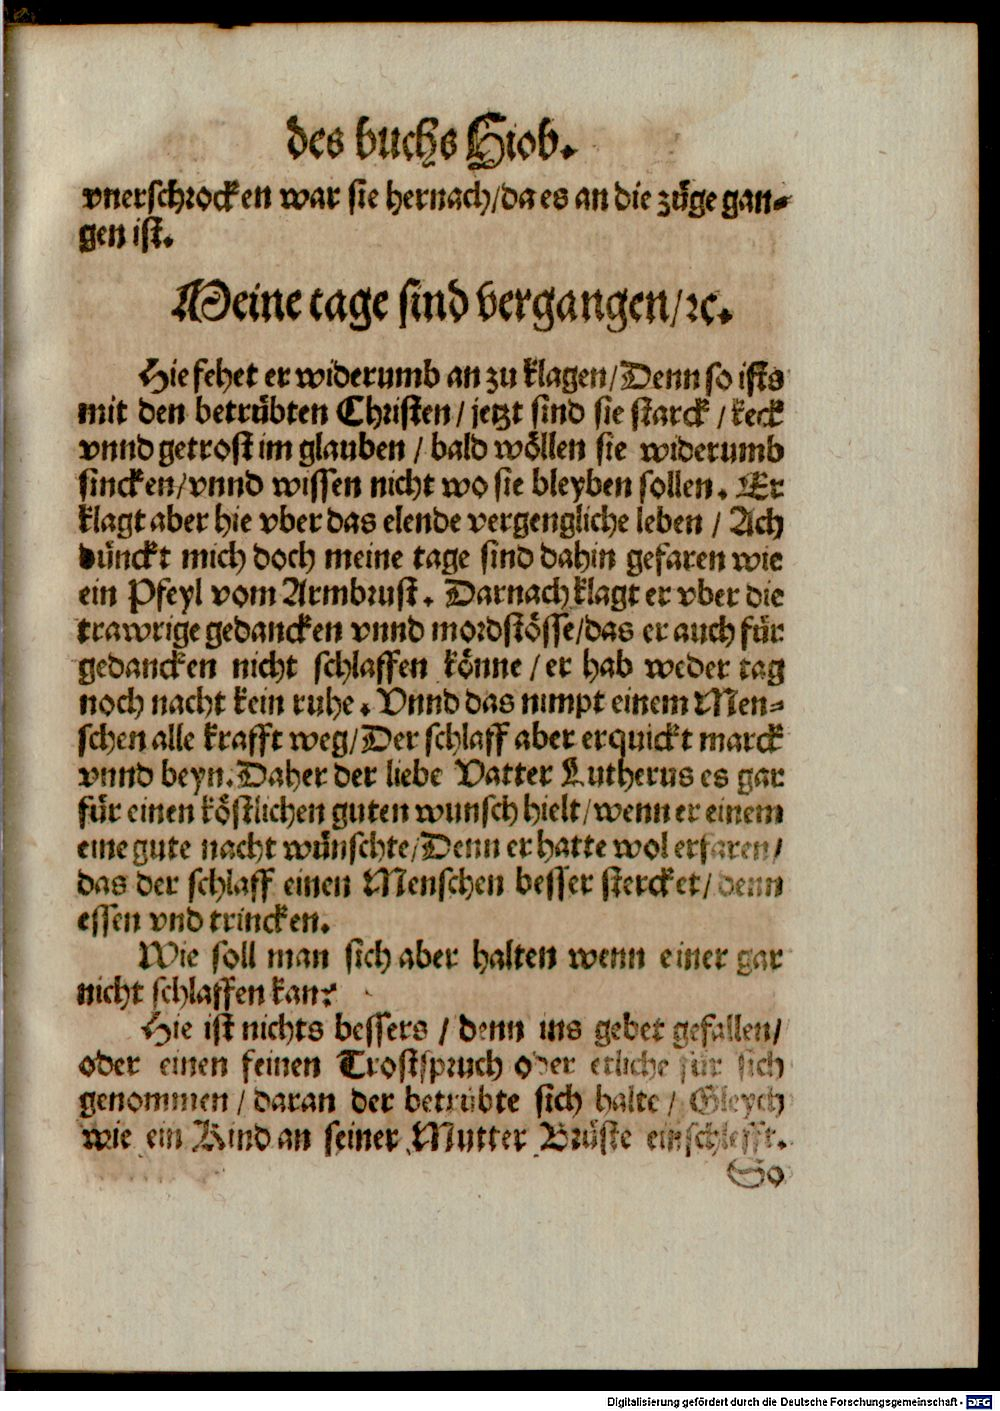 des buchs Hiob.
vnerschrocken war sie hernach/da es an die züge gan-
gen ist.
Meine tage sind vergangen/ꝛc.
Hie fehet er widerumb an zu klagen/Denn so ists
mit den betrübten Christen/jetzt sind sie starck/keck
vnnd getrost im glauben/bald wöllen sie widerumb
sincken/vnnd wissen nicht wo sie bleyben sollen. Er
klagt aber hie vber das elende vergengliche leben/Ach
dünckt mich doch meine tage sind dahin gefaren wie
ein Pfeyl vom Armbrust. Darnach klagt er vber die
trawrige gedancken vnnd mordstösse/das er auch für
gedancken nicht schlaffen könne/er hab weder tag
noch nacht kein ruhe. Vnnd das nimpt einem Men-
schen alle krafft weg/Der schlaff aber erquickt marck
vnnd beyn. Daher der liebe Vatter Lutherus es gar
für einen köstlichen guten wunsch hielt/wenn er einem
eine gute nacht wünschte/Denn er hatte wol erfaren/
das der schlaff einen Menschen besser stercket/denn
essen vnd trincken.
Wie soll man sich aber halten wenn einer gar
nicht schlaffen kan?
Hie ist nichts bessers/denn ins gebet gefallen/
oder einen feinen Trostspruch oder etliche für sich
genommen/daran der betrübte sich halte/Gleych
wie ein Kind an seiner Mutter Brüste einschlefft.
So
Digitalisierung gefördert durch die Deutsche Forschungsgemeinschaft - DFG